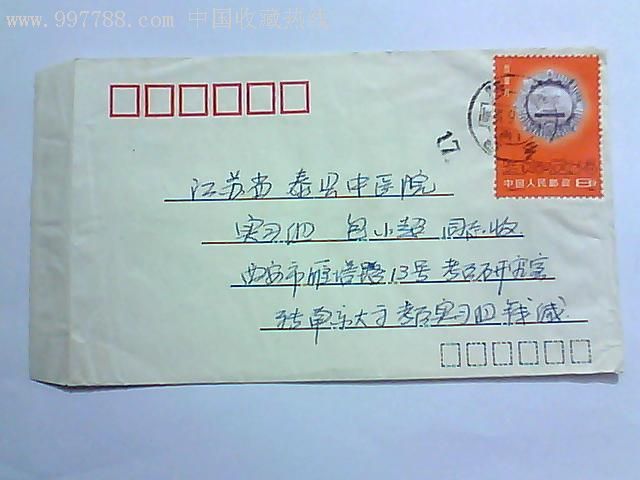 www.997788.com 中国收藏热线
中国人民邮政 8分
17
江苏省 泰县中医院
实习四 包小超 同志收
西安市雁塔路13号 考古研究室
转南京大学考古实习四 钱威